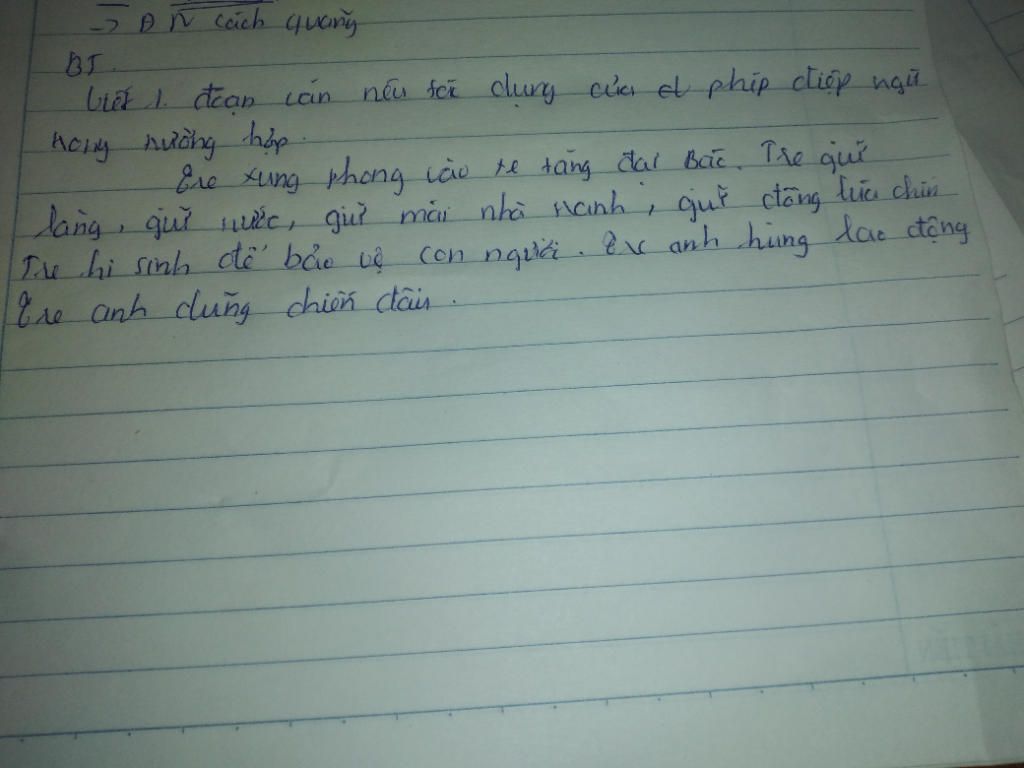 → ĐN cách quãng
BT.
Viết 1 đoạn văn nêu tác dụng của phép điệp ngữ
trong trường hợp.
Tre xung phong vào xe tăng đại Bác. Tre giữ
làng, giữ nước, giữ mái nhà tranh, giữ đồng lúa chín
Tre hi sinh để bảo vệ con người. Tre anh hùng lao động
Tre anh dũng chiến đấu.